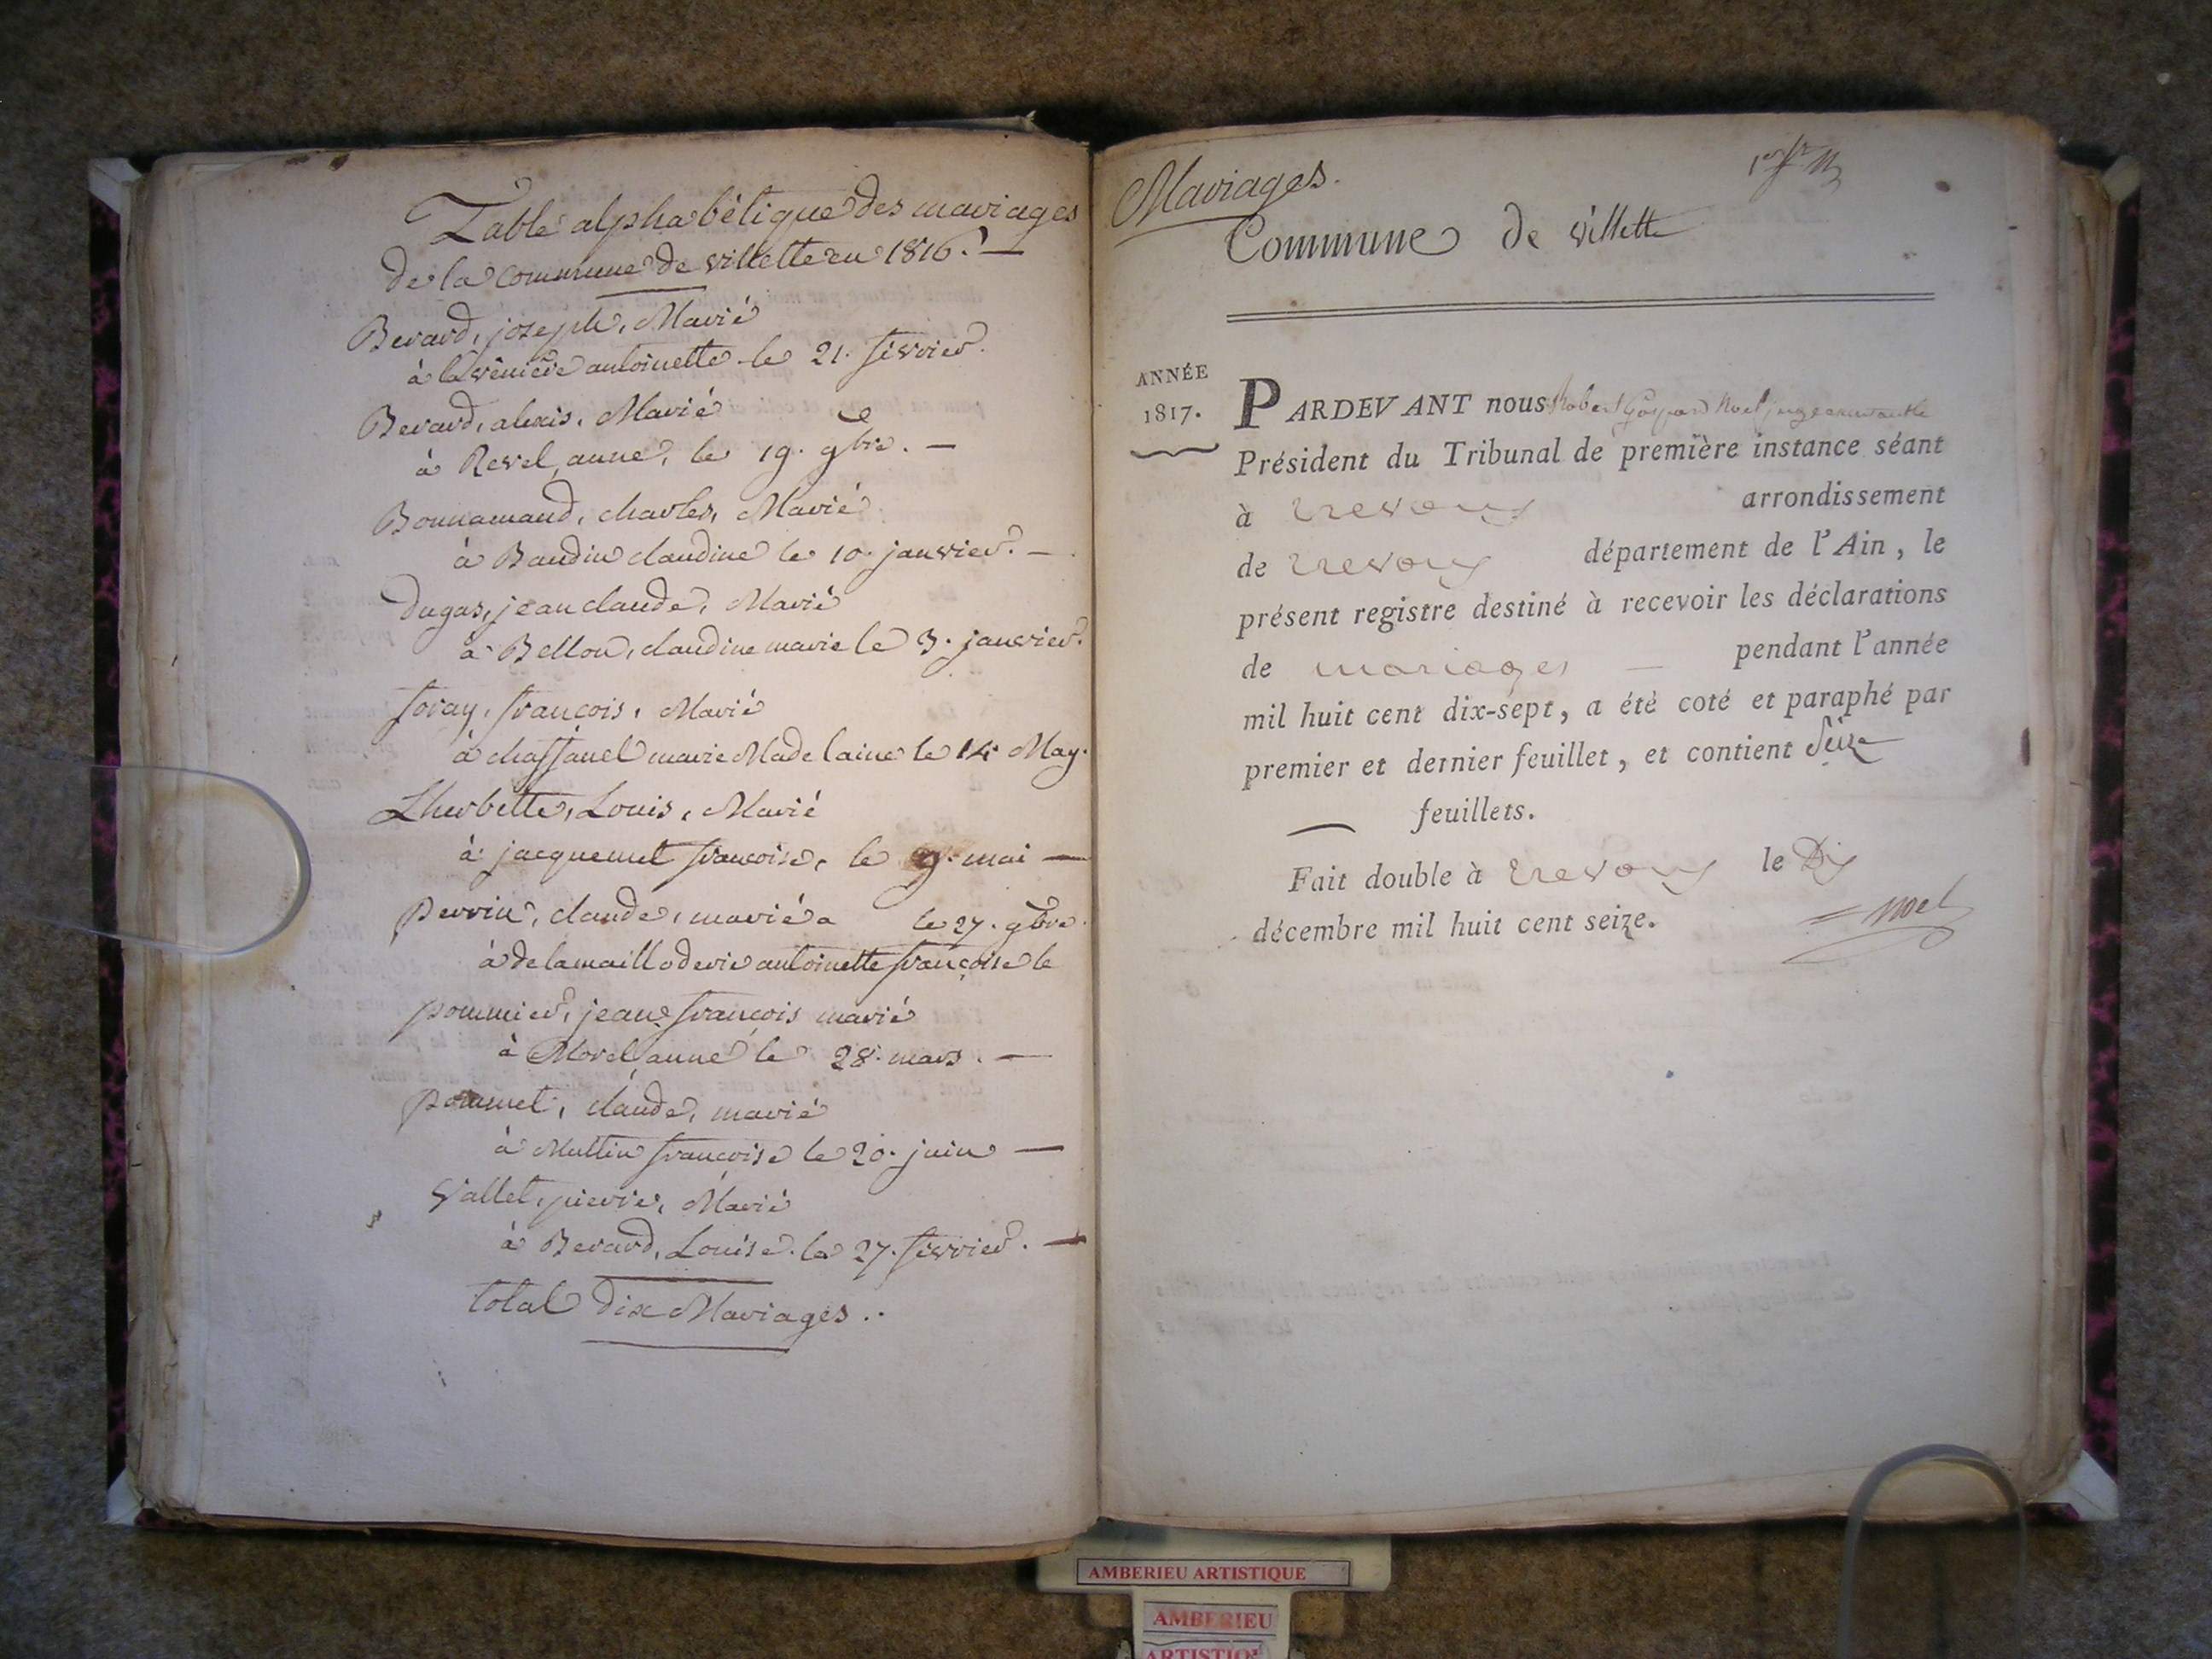 Table alphabétique des mariages
de la commune de villette en 1816. —
Berard, joseph, Marié
à antoinette le 21. février.
Berard, alexis, Marié
à Revel, anne, le 19. 9bre. —
Bonnamand, charles, Marié
à Baudin claudine le 10. janvier. —
Dugas, jean claude, Marié
à Bellon, claudine marie le 3. janvier.
foray, françois, Marié
à chassanel marie Madelaine le 14 May.
Lherbette, Louis, Marié
à jacquemet françoise, le 9. mai —
Perrin, claude, marié a le 27. 9bre.
à delamailloderie antoinette françoise le
pommier, jean françois marié
à Morel anne le 28. mars. —
pommet, claude, marié
à Muttin françoise le 20. juin —
Vallet, pierre, Marié
à Berard, Louise. le 27. février. —
total dix Mariages..
Mariages.
Commune de villette
ANNÉE
1817.
PARDEVANT nous Robert Gaspard Noel juge
Président du Tribunal de première instance séant
à trevoux arrondissement
de trevoux département de l'Ain, le
présent registre destiné à recevoir les déclarations
de mariages — pendant l'année
mil huit cent dix-sept, a été coté et paraphé par
premier et dernier feuillet, et contient Seize
feuillets.
Fait double à trevoux le Dix
décembre mil huit cent seize.
Noel
AMBERIEU ARTISTIQUE
AMBERIEU
ARTISTIQUE